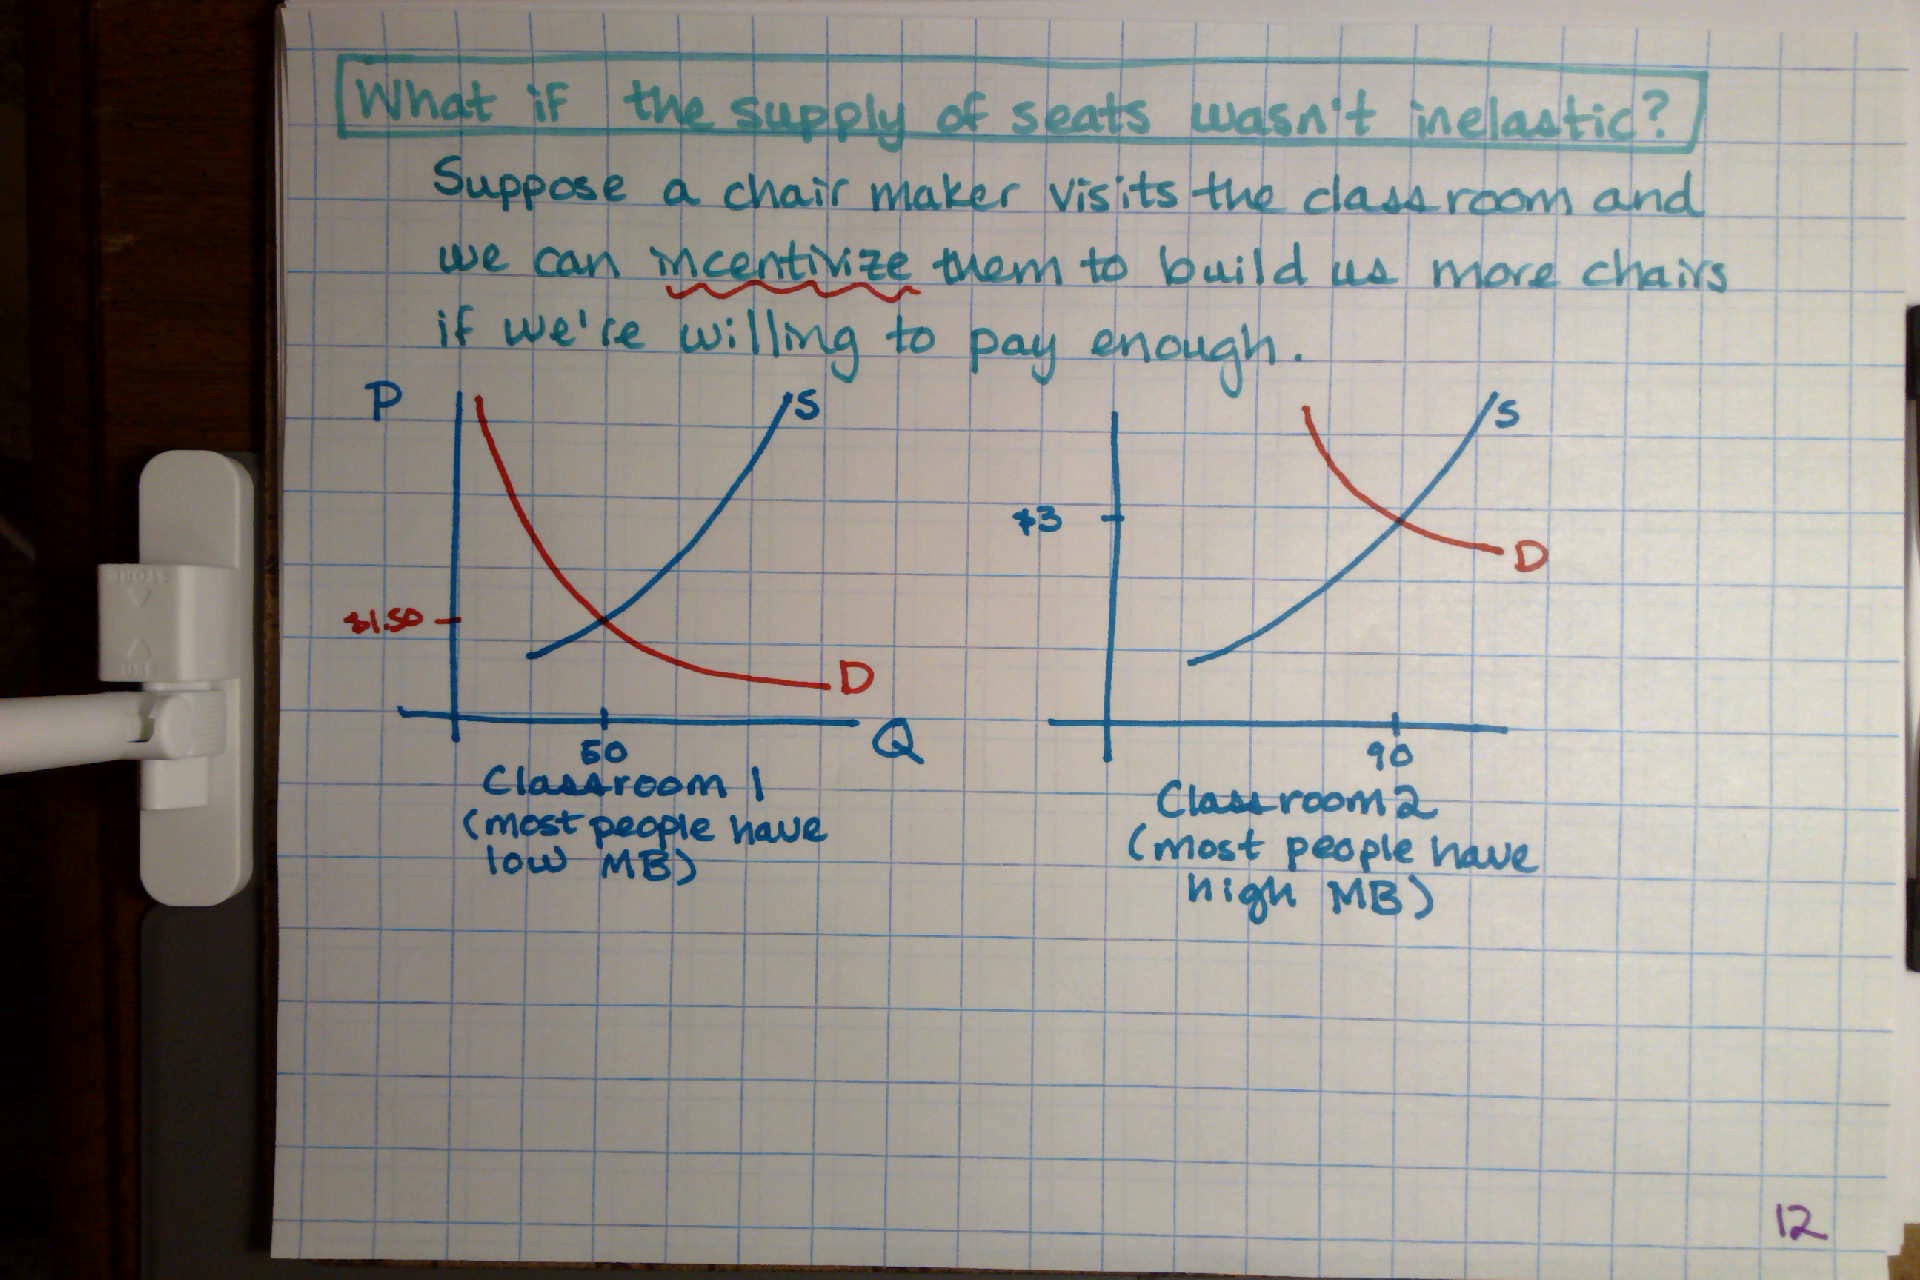 What if the supply of seats wasn't inelastic?
Suppose a chair maker visits the classroom and
we can incentivize them to build us more chairs
if we're willing to pay enough.
P
S
$1.50
D
50
Q
Classroom 1
(most people have
low MB)
S
$3
D
90
Classroom 2
(most people have
high MB)
12